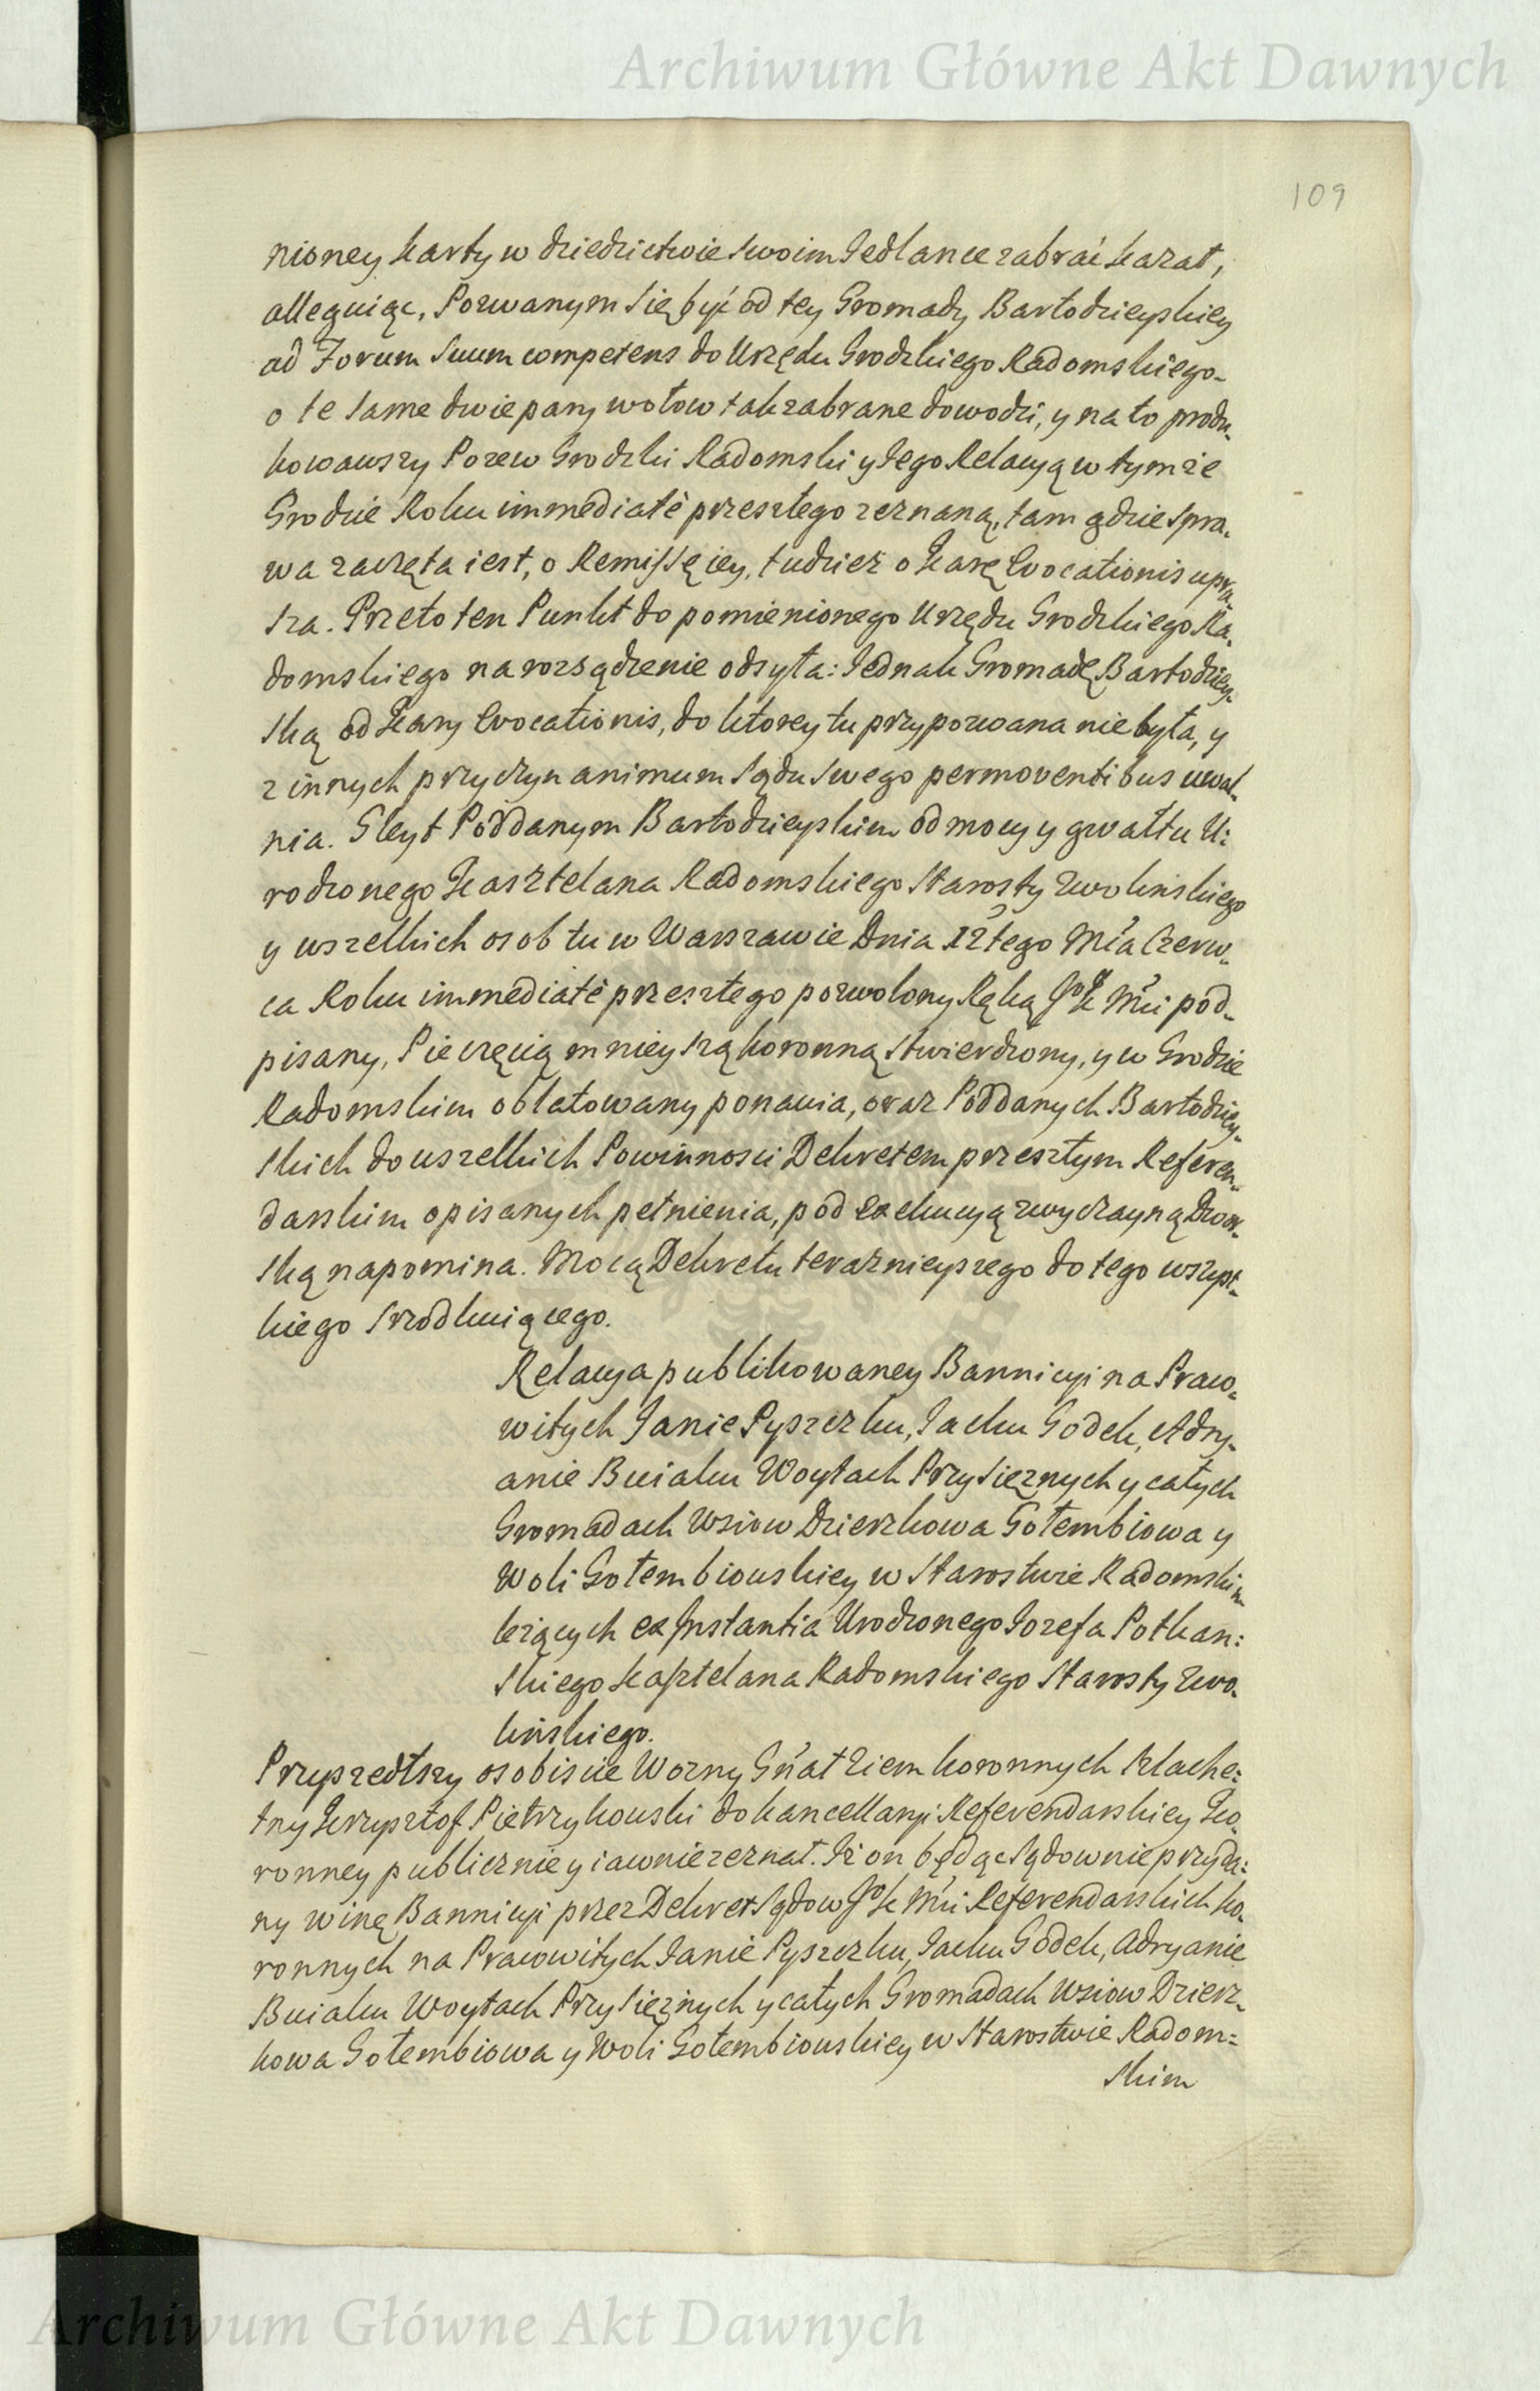 Archiwum Główne Akt Dawnych
109
nioney karty w dziedzictwie swoim Jedlance zabrać kazał,
alleguiąc, Pozwanym się być od tey Gromady Bartodzieyskiey
ad Forum suum competens do Urzędu Grodzkiego Radomskiego-
o te same dwie pary wołow tak zabrane dowodzi, y na to produ-
kowawszy Pozew Grodzki Radomski y Jego Relacyą w tymże
Grodzie Roku immediatè przeszłego zeznaną, tam gdzie spra-
wa zaczęta iest, o Remissę iey, tudzież o Karę Evocationis upra-
sza. Przeto ten Punkt do pomienionego Urzędu Grodzkiego Ra-
domskiego na rozsądzenie odsyła: Jednak Gromadę Bartodziey-
ską od Kary Evocationis, do ktorey tu przypozwana nie była, y
z innych przyczyn animum Sądu Swego permoventibus uwal-
nia. Gleyt Poddanym Bartodzieyskim od mocy y gwałtu U:
rodzonego Kasztelana Radomskiego Starosty Zwolinskiego
y wszelkich osob tu w Warszawie Dnia 12tego Mca Czerw-
ca Roku immediatè przeszłego pozwolony Ręką JoK Mci pod-
pisany, Pieczęcią mnieyszą koronną stwierdzony, y w Grodzie
Radomskim oblatowany ponawia, oraz Poddanych Bartodziey-
skich do wszelkich Powinnosci Dekretem przeszłym Referen-
darskim opisanych pełnienia, pod exekucyą zwyczayną Dwor-
ską napomina. Mocą Dekretu terazniejszego do tego wszyst-
kiego srzodkuiącego.
Relacya publikowaney Bannicyi na Praco-
witych Janie Pyszczku, Jacku Godek, Adry-
anie Buiaku Woytach Przysiężnych y całych
Gromadach Wsiow Dzierzkowa Gołembiowa y
Woli Gołembiowskiey w Starostwie Radomskim
leżących ex Instantia Urodzonego Jozefa Potkan:
skiego Kasztelana Radomskiego Starosty Zwo-
linskiego.
Przyszedłszy osobiscie Wozny Gn'ał Ziem koronnych Szlache:
tny Krzysztof Pietrzykowski do kancellaryi Referendarskiey Ko-
ronney publicznie y iawnie zeznał. Iż on będąc sądownie przyda:
ny winę Bannicyi przez Dekret Sądow JoK Mci Referendarskich ko-
ronnych na Pracowitych Janie Pyszczku, Jacku Godek, Adryanie
Buiaku Woytach Przysiężnych y całych Gromadach Wsiow Dzierz-
kowa Gołembiowa y Woli Gołembiowskiey w Starostwie Radom=
skim
Archiwum Główne Akt Dawnych